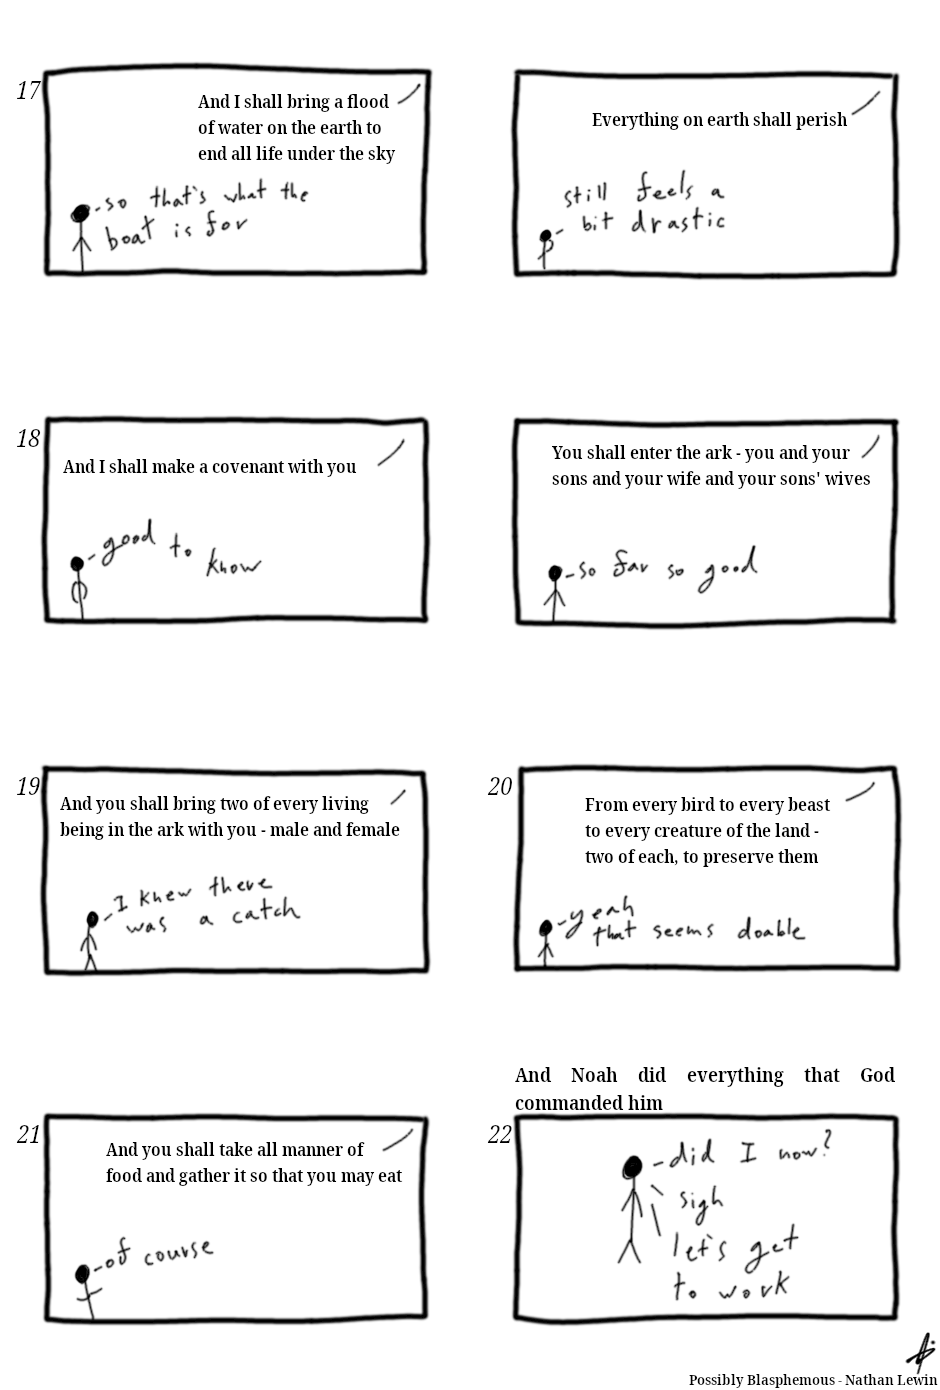 17
And I shall bring a flood
of water on the earth to
end all life under the sky
so that's what the
boat is for
Everything on earth shall perish
still feels a
bit drastic
18
And I shall make a covenant with you
good to know
You shall enter the ark - you and your
sons and your wife and your sons' wives
so far so good
19
And you shall bring two of every living
being in the ark with you - male and female
I knew there
was a catch
20
From every bird to every beast
to every creature of the land -
two of each, to preserve them
yeah
that seems doable
21
And you shall take all manner of
food and gather it so that you may eat
of course
And Noah did everything that God
commanded him
22
did I now?
sigh
let's get
to work
Possibly Blasphemous - Nathan Lewin